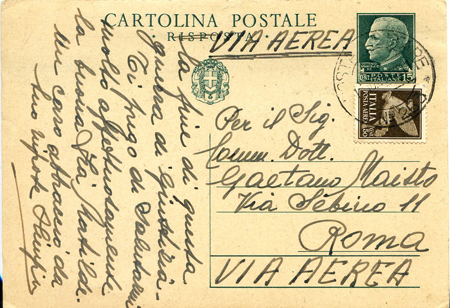 CARTOLINA POSTALE
RISPOSTA
VIA AEREA
ITALIA
Per il Sig.
Comm. Dott.
Gaetano Maisto
Via Sebino 11
Roma
VIA AEREA
la fine di questa
guerra di giustizia.
Ti prego di salutarmi
molto affettuosamente
la buona Zia Matilde.
Un caro abbraccio da
tuo nipote